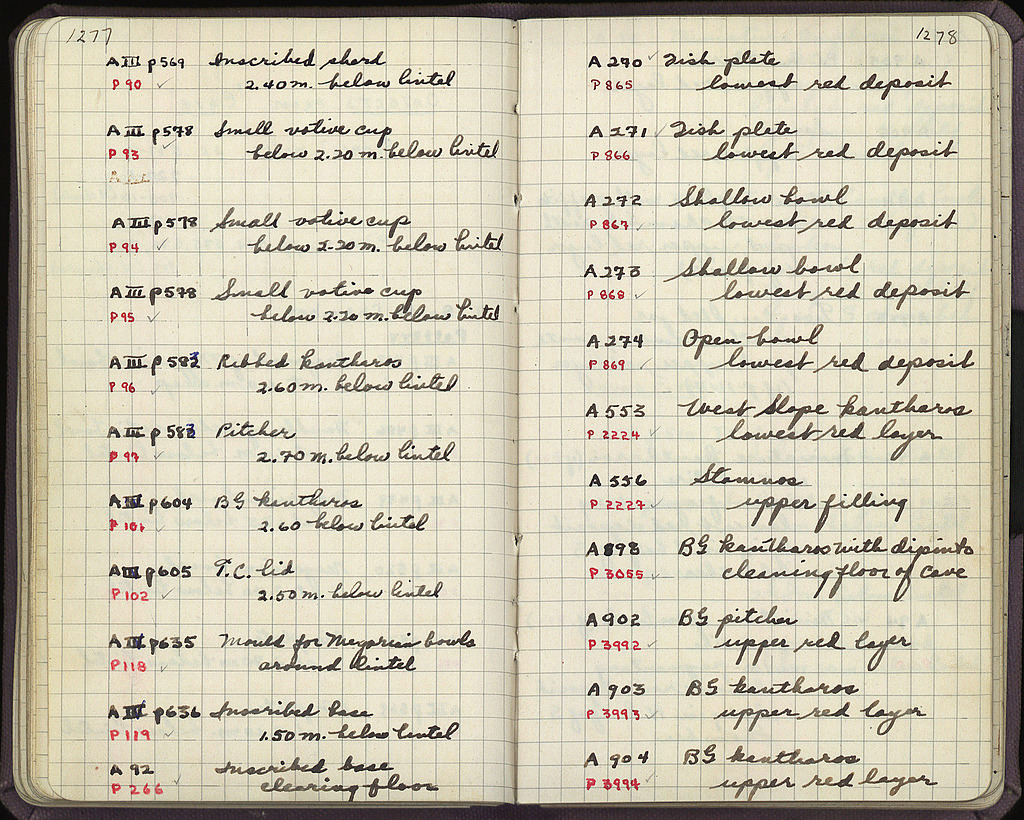 1277
A III p569 Inscribed sherd
P 90 ✓ 2.40 m. below lintel
A III p578 Small votive cup
P 93 ✓ below 2.20 m. below lintel
A III p578 Small votive cup
P 94 ✓ below 2.20 m. below lintel
A III p578 Small votive cup
P 95 ✓ below 2.20 m. below lintel
A III p583 Ribbed kantharos
P 96 ✓ 2.60 m. below lintel
A III p583 Pitcher
P 97 ✓ 2.70 m. below lintel
A III p604 BG kantharos
P 101 2.60 below lintel
A III p605 T.C. lid
P 102 ✓ 2.50 m. below lintel
A III p635 Mould for Megarian bowls
P 118 ✓ around lintel
A III p636 Inscribed base
P 119 ✓ 1.50 m. below lintel
A 92 Inscribed base
P 266 ✓ clearing floor
1278
A 270 ✓ Fish plate
P 865 lowest red deposit
A 271 ✓ Fish plate
P 866 lowest red deposit
A 272 Shallow bowl
P 867 ✓ lowest red deposit
A 273 Shallow bowl
P 868 ✓ lowest red deposit
A 274 Open bowl
P 869 ✓ lowest red deposit
A 553 West Slope kantharos
P 2224 ✓ lowest red layer
A 556 Stamnos
P 2227 ✓ upper filling
A 898 BG kantharos with dipinto
P 3055 ✓ cleaning floor of cave
A 902 BG pitcher
P 3992 ✓ upper red layer
A 903 BG kantharos
P 3993 ✓ upper red layer
A 904 BG kantharos
P 3994 ✓ upper red layer